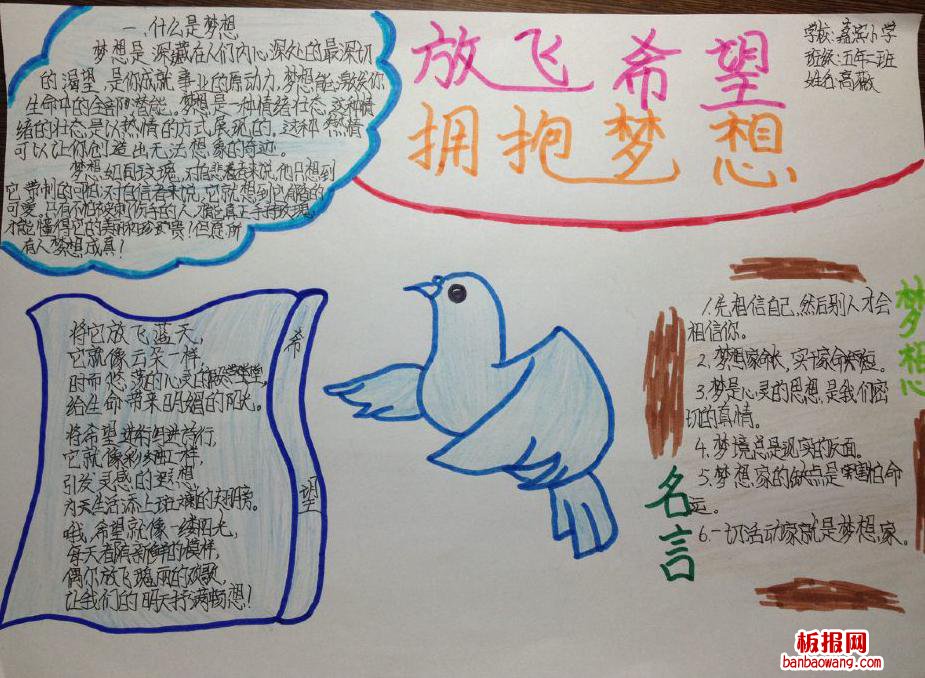 放飞希望
拥抱梦想
学校:嘉滨小学
班级:五年二班
姓名:高薇
一、什么是梦想
梦想是深藏在人们内心深处的最深切
的渴望,是你成就事业的原动力,梦想能激发你
生命中的全部潜能。梦想是一种情绪状态,这种情
绪的状态是以热情的方式展现的,这种热情
可以让你创造出无法想象的奇迹。
梦想,如同玫瑰,对自卑者来说,他只想到
它带刺的可怕;对自信者来说,它就想到它
可爱。只有
才能懂得它的美丽和珍贵!但愿所
有人梦想成真!
希望
将它放飞蓝天,
它就像云朵一样
时而悠荡的心灵的
给生命带来明媚的阳光。
将希望进行
它就像彩虹一样,
引发灵感的
为天生活添上斑斓的翅膀。
哦,希望就像一缕阳光,
每天看清新鲜的模样,
偶尔放飞
让我们的明天抒满畅想!
梦想
名言
1.先相信自己,然后别人才会
相信你。
2.梦想家命长,实干家命短。
3.梦是心灵的思想,是我们密
切的真情。
4.梦境总是现实的反面。
5.梦想家的缺点是害怕命
运。
6.一切活动家就是梦想家。
板报网
banbaowang.com